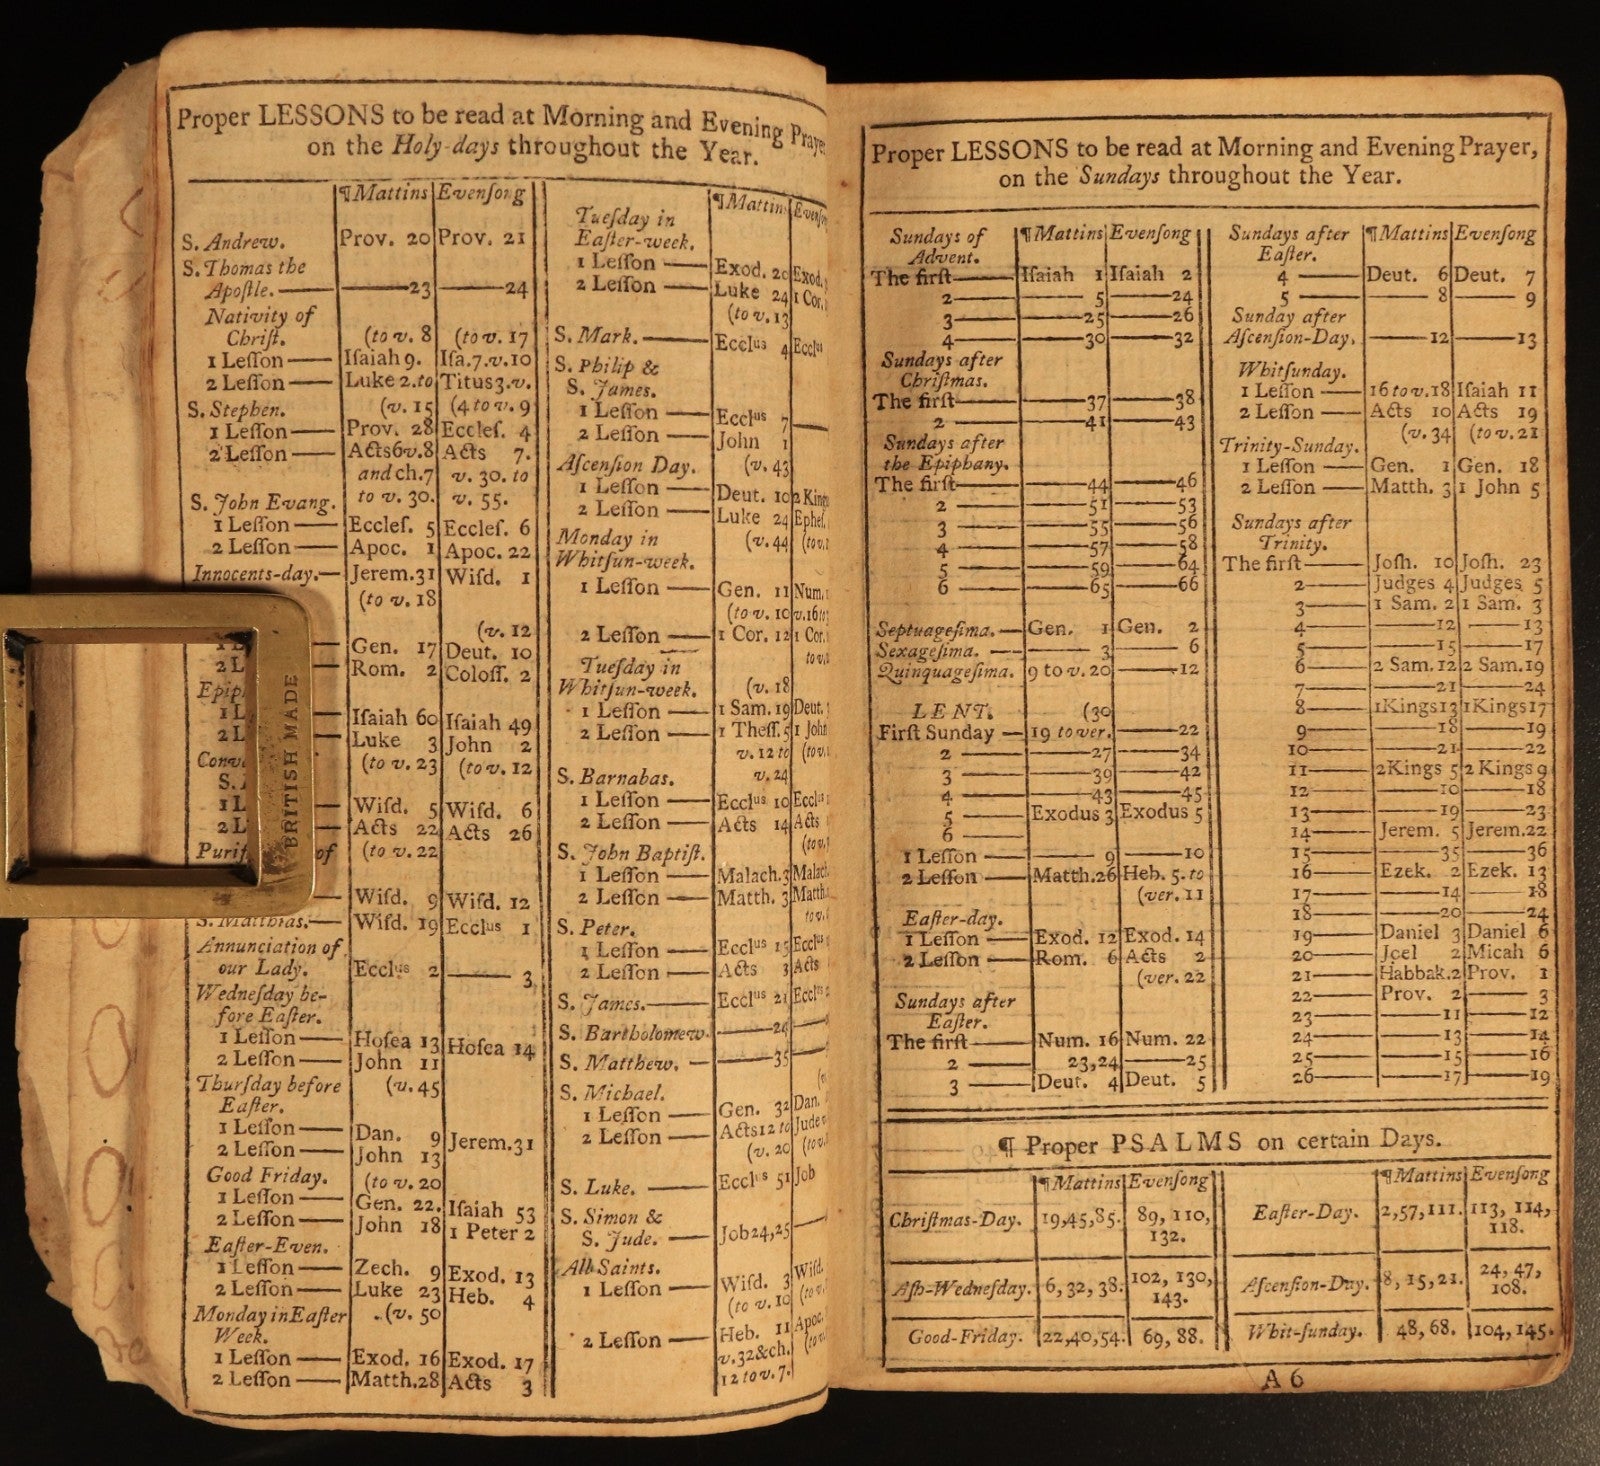 Proper LESSONS to be read at Morning and Evening Prayer
on the Holy-days throughout the Year.
¶Mattins Evenſong
S. Andrew. Prov. 20 Prov. 21
S. Thomas the
Apoſtle. 23 24
Nativity of
Chriſt. (to v. 8 (to v. 17
1 Leſſon Iſaiah 9. Iſa.7.v.10
2 Leſſon Luke 2.to Titus3.v.
S. Stephen. (v. 15 (4 to v. 9
1 Leſſon Prov. 28 Eccleſ. 4
2 Leſſon Acts6v.8 Acts 7.
and ch.7 v. 30. to
to v. 30. v. 55.
S. John Evang.
1 Leſſon Eccleſ. 5 Eccleſ. 6
2 Leſſon Apoc. 1 Apoc. 22
Innocents-day. Jerem.31 Wiſd. 1
(to v. 18
(v. 12
1 L Gen. 17 Deut. 10
2 L Rom. 2 Coloſſ. 2
Epip
1 L Iſaiah 60 Iſaiah 49
2 L Luke 3 John 2
Conv (to v. 23 (to v. 12
S.
1 L Wiſd. 5 Wiſd. 6
2 L Acts 22 Acts 26
Purif of (to v. 22
Wiſd. 9 Wiſd. 12
S. Matthias. Wiſd. 19 Ecclus 1
Annunciation of
our Lady. Ecclus 2 3
Wedneſday be-
fore Eaſter.
1 Leſſon Hoſea 13 Hoſea 14
2 Leſſon John 11
Thurſday before (v. 45
Eaſter.
1 Leſſon Dan. 9 Jerem.31
2 Leſſon John 13
Good Friday. (to v. 20
1 Leſſon Gen. 22. Iſaiah 53
2 Leſſon John 18 1 Peter 2
Eaſter-Even.
1 Leſſon Zech. 9 Exod. 13
2 Leſſon Luke 23 Heb. 4
Monday in Eaſter (v. 50
Week.
1 Leſſon Exod. 16 Exod. 17
2 Leſſon Matth.28 Acts 3
BRITISH MADE
¶Mattins Evenſon
Tueſday in
Eaſter-week.
1 Leſſon Exod. 20 Exod.
2 Leſſon Luke 24 1 Cor.
(to v. 13
S. Mark. Ecclus 4 Ecclus
S. Philip &
S. James.
1 Leſſon Ecclus 7
2 Leſſon John 1
Aſcenſion Day. (v. 43
1 Leſſon Deut. 10 2 Kings
2 Leſſon Luke 24 Epheſ.
Monday in (v. 44 (to v.
Whitſun-week.
1 Leſſon Gen. 11 Num.
(to v. 10 v.16 to
2 Leſſon 1 Cor. 12 1 Cor.
to v.
Tueſday in
Whitſun-week. (v. 18
1 Leſſon 1 Sam. 19 Deut.
2 Leſſon 1 Theſſ. 5 1 John
v. 12 to (to v.
S. Barnabas. v. 24
1 Leſſon Ecclus 10 Ecclus
2 Leſſon Acts 14 Acts
(to v.
S. John Baptiſt.
1 Leſſon Malach.3 Malac
2 Leſſon Matth. 3 Matth
to v.
S. Peter.
1 Leſſon Ecclus 15 Ecclus
2 Leſſon Acts 3 Acts
S. James. Ecclus 21 Ecclus
S. Bartholomew. 24
S. Matthew. 35
S. Michael.
1 Leſſon Gen. 32 Dan.
2 Leſſon Acts12 to Jude v
(v. 20 (to v.
S. Luke. Ecclus 51 Job
S. Simon &
S. Jude. Job24,25
All Saints.
1 Leſſon Wiſd. 3 Wiſd.
(to v. 10 (to v.
2 Leſſon Heb. 11 Apoc.
v.32&ch. (to v.
12 to v. 7.
Proper LESSONS to be read at Morning and Evening Prayer,
on the Sundays throughout the Year.
Sundays of ¶Mattins Evenſong
Advent.
The firſt Iſaiah 1 Iſaiah 2
2 5 24
3 25 26
4 30 32
Sundays after
Chriſtmas.
The firſt 37 38
2 41 43
Sundays after
the Epiphany.
The firſt 44 46
2 51 53
3 55 56
4 57 58
5 59 64
6 65 66
Septuageſima. Gen. 1 Gen. 2
Sexageſima. 3 6
Quinquageſima. 9 to v. 20 12
LENT. (30
Firſt Sunday 19 to ver. 22
2 27 34
3 39 42
4 43 45
5 Exodus 3 Exodus 5
6
1 Leſſon 9 10
2 Leſſon Matth.26 Heb. 5. to
(ver. 11
Eaſter-day.
1 Leſſon Exod. 12 Exod. 14
2 Leſſon Rom. 6 Acts 2
(ver. 22
Sundays after
Eaſter.
The firſt Num. 16 Num. 22
2 23,24 25
3 Deut. 4 Deut. 5
Sundays after ¶Mattins Evenſong
Eaſter.
4 Deut. 6 Deut. 7
5 8 9
Sunday after
Aſcenſion-Day. 12 13
Whitſunday.
1 Leſſon 16 to v.18 Iſaiah 11
2 Leſſon Acts 10 Acts 19
(v. 34 (to v.21
Trinity-Sunday.
1 Leſſon Gen. 1 Gen. 18
2 Leſſon Matth. 3 1 John 5
Sundays after
Trinity.
The firſt Joſh. 10 Joſh. 23
2 Judges 4 Judges 5
3 1 Sam. 2 1 Sam. 3
4 12 13
5 15 17
6 2 Sam. 12 2 Sam.19
7 21 24
8 1Kings13 1Kings17
9 18 19
10 21 22
11 2Kings 5 2 Kings 9
12 10 18
13 19 23
14 Jerem. 5 Jerem.22
15 35 36
16 Ezek. 2 Ezek. 13
17 14 18
18 20 24
19 Daniel 3 Daniel 6
20 Joel 2 Micah 6
21 Habbak.2 Prov. 1
22 Prov. 2 3
23 11 12
24 13 14
25 15 16
26 17 19
¶ Proper PSALMS on certain Days.
¶Mattins Evenſong ¶Mattins Evenſong
Chriſtmas-Day. 19,45,85. 89, 110, 132. Eaſter-Day. 2,57,111. 113, 114, 118.
Aſh-Wedneſday. 6, 32, 38. 102, 130, 143. Aſcenſion-Day. 8, 15, 21. 24, 47, 108.
Good-Friday. 22,40,54. 69, 88. Whit-ſunday. 48, 68. 104, 145.
A 6